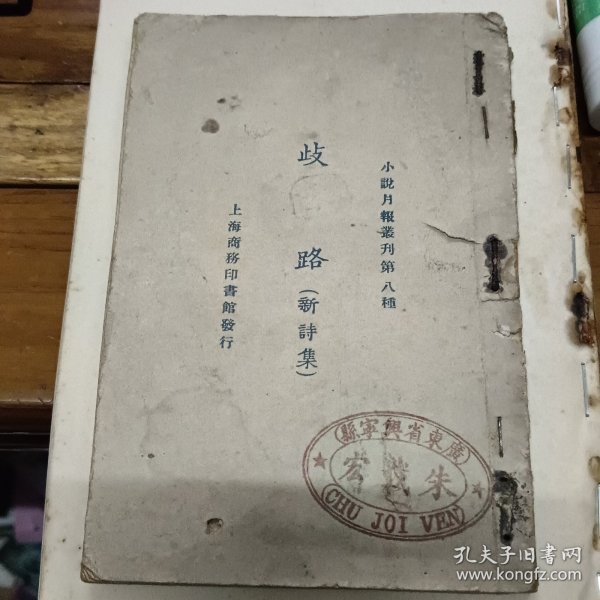 小說月報叢刊第八種
歧路(新詩集)
上海商務印書館發行
廣東省興寧縣
朱茂宏
CHU JOI VEN
孔夫子旧书网
www.kongfz.com